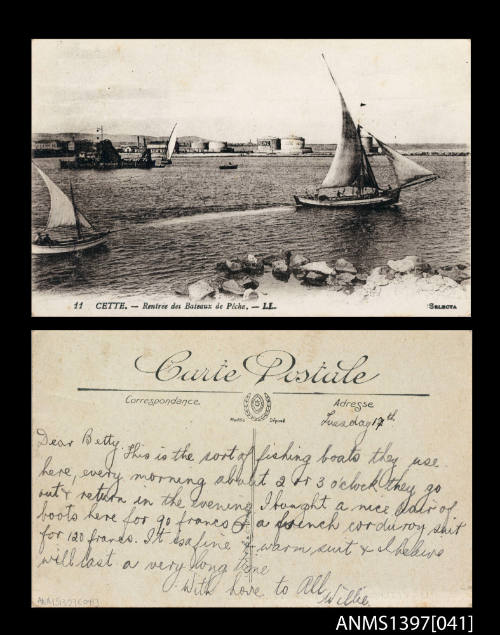 11 CETTE. - Rentrée des Bateaux de Pêche. - LL.
SELECTA
Carte Postale
Correspondance
Adresse
Modèle Déposé
Tuesday 17th
Dear Betty. This is the sort of fishing boats they use
here, every morning about 2 or 3 o'clock they go
out & return in the evening I bought a nice pair of
boots here for 90 francs & a french corduroy suit
for 120 francs. It is a fine & warm suit & I believe
will last a very long time
With love to All
Willie
ANMS1397[041]
ANMS1397[041]